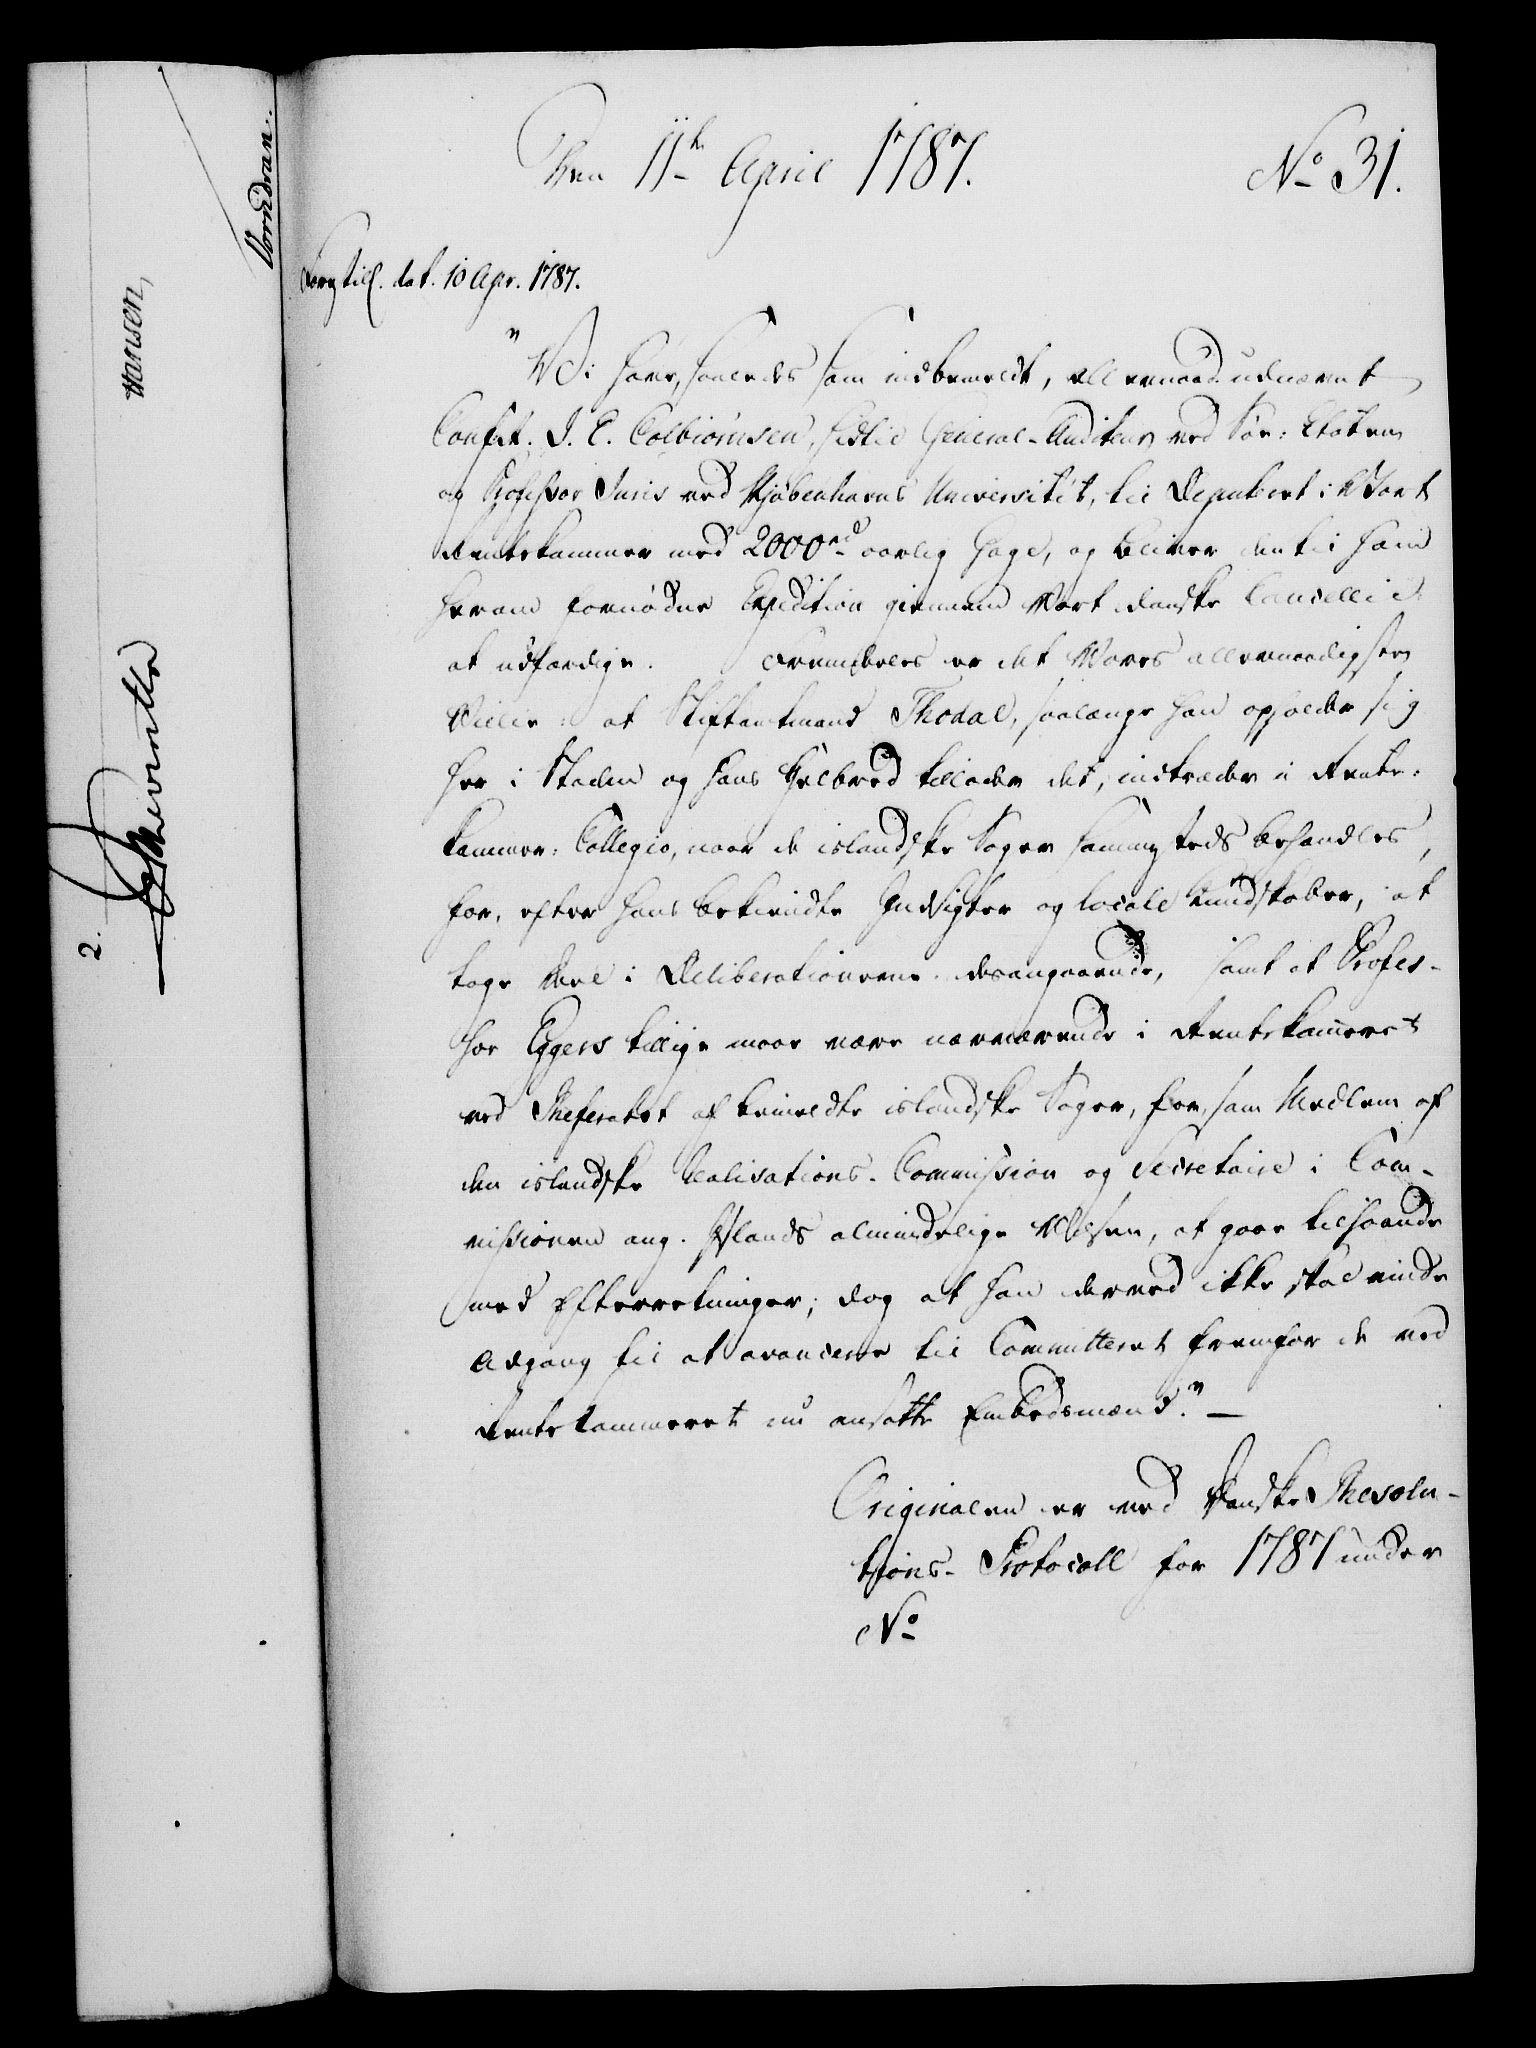 Den 11te April 1787.
No 31.
Forestill. dat. 10 Apr. 1787.
"Vi have, saaledes som indbemeldt, allernaad. udnævnt
Confer. J. E. Colbiørnsen, sidst General-Auditeur ved Søe-Etaten
og Professor Juris ved Kjøbenhavns Universitet, til Deputeret i Vort
Rentekammer med 2000 rd aarlig Gage, og bliver den til ham
herom fornødne Expedition giennem Vort danske Cancellie
at udfærdige. Fremdeles er det Vores allernaadigste
Villie: at Stiftamtmand Thodal, saalænge han opholder sig
her i Staden og hans Helbred tillader det, indtræder i Rente-
kammer-Collegio, naar de islandske Sager sammesteds behandles,
for, efter hans bekiendte Indsigter og locale Kundskaber, at
tage Deel i Deliberationerne desangaaende, samt at Profes-
sor Eggers tillige maae være nærværende i Rentekammeret
ved Referatet af bemeldte islandske Sager, for, som Medlem af
den islandske Realisations-Commission og Secretaire i Com-
missionen ang. Islands almindelige Væsen, at gaae tilhaande
med Efterretninger; dog at han derved ikke skal vinde
Adgang til at avancere til Committeret fremfor de ved
Rentekammeret nu ansatte Embedsmænd." —
Originalen er ved Danske Resolu-
tions-Protocoll for 1787 under
No
Vorndran.
Hansen,
2.